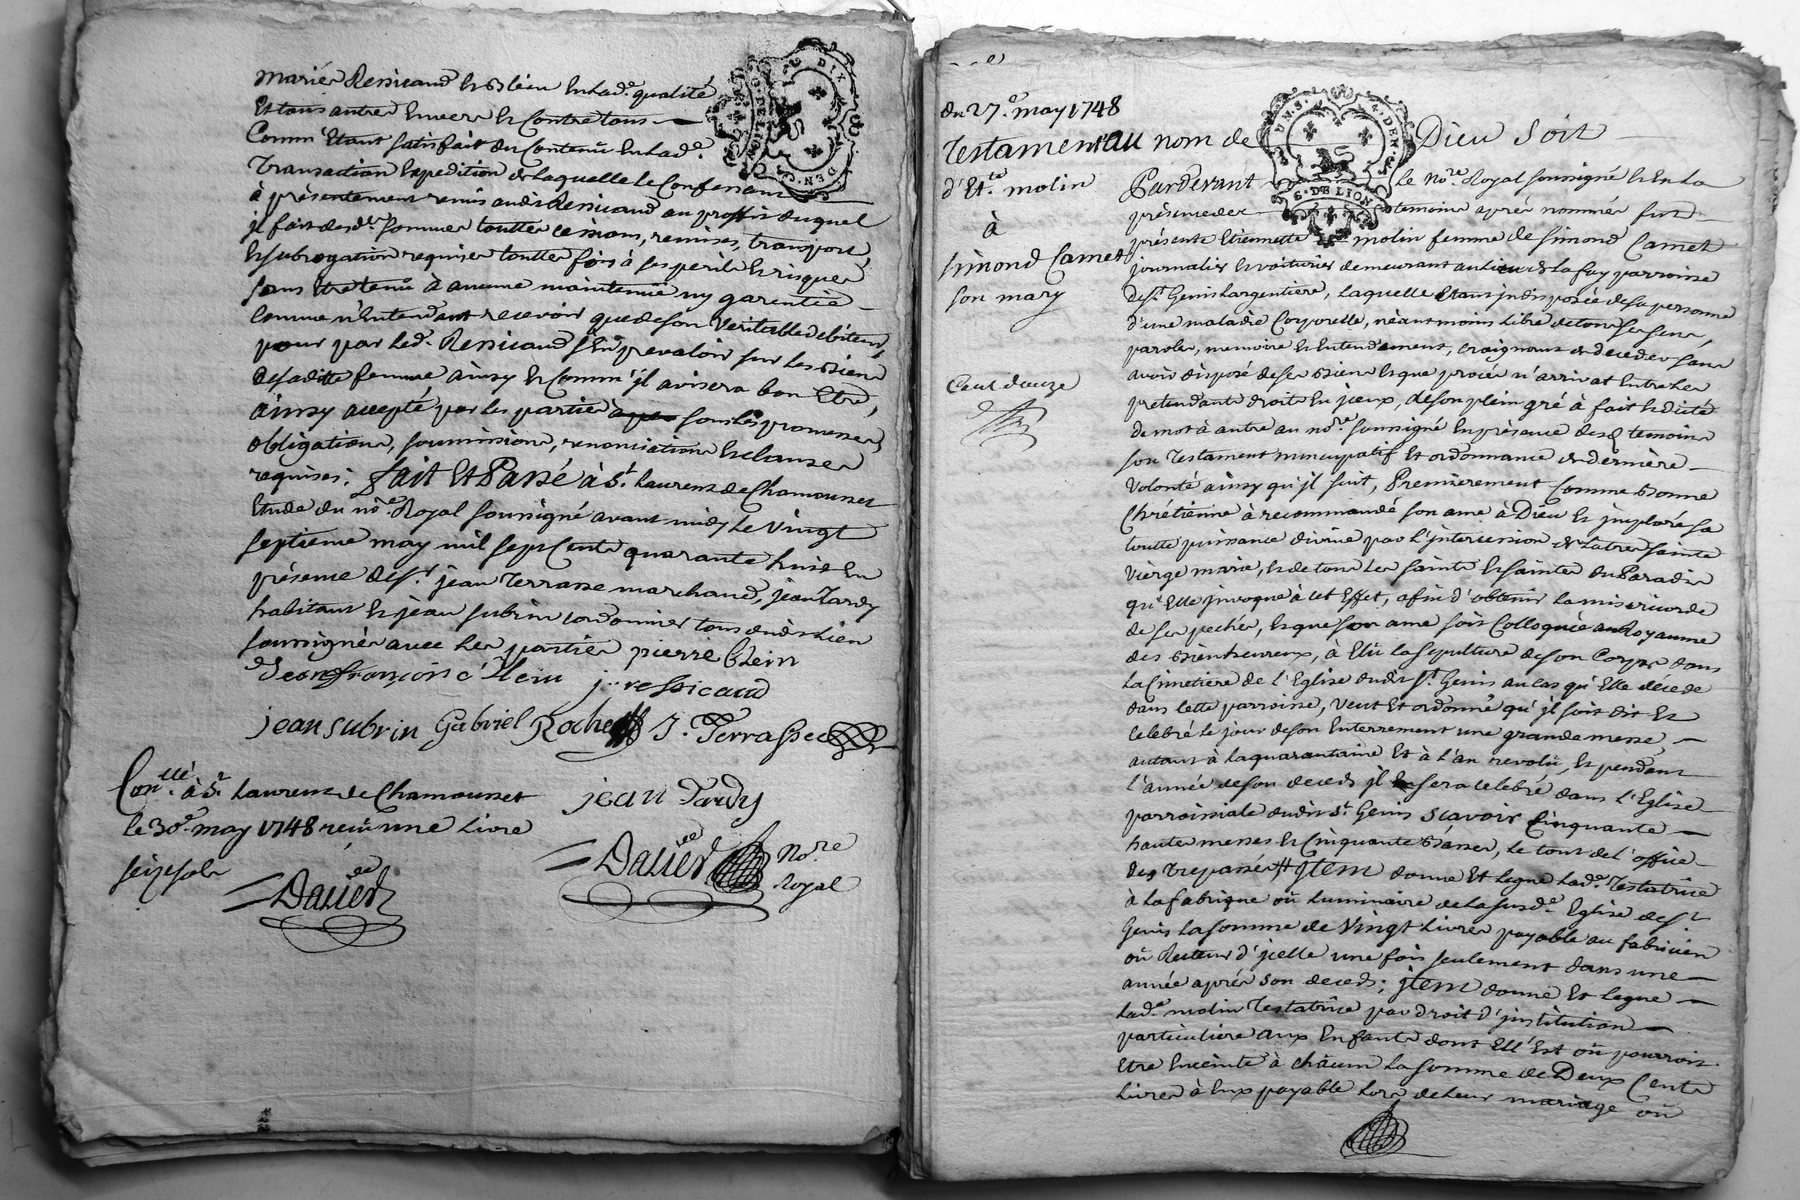 mariés Ressicand et Blein en lad.e qualité
et tous autres envers et contre tous
Comm' Etant satisfait du Contenû en lad.e
Transaction Expedition de laquelle le Confessant
à présentement remis audit Ressicand au proffit duquel
il fait desd.es sommes touttes cessions, remises, transport,
et subrogation requises touttes fois à ses perils et risques
sans etre tenû à aucune maintenüe ny garentie
comme n'Entendant recevoir que de son veritable debiteur,
pour par led. Ressicand s'En prevaloir sur les biens
de saditte femme ainsy et comm' il avisera bon Etre,
ainsy accepté par les parties sous les promesses
obligations, soumissions, renonciations et clauses
requises; fait Et Passé à S.t Laurent de Chamousset
Etude du no.re Royal soussigné avant midy le vingt
septieme may mil sept Cents quarante huit en
présence de s.r jean Terrasse marchand, jean Tardy
habitant et jean subrin cordonnier tous dudit lieu
soussignés avec les parties pierre blein
jean françois blein j. ressicaud
jean subrin Gabriel Roche J. Terrasse
jean Tardy
Con.llé à S.t Laurent de Chamousset
le 30.e may 1748 reçû une Livre
seize sols
Dalier
Dalier No.re
Royal
du 27.e may 1748
Testament
d'Et.te molin
à
simond Camet
son mary
Cent douze
au nom de Dieu soit
DIX
DEN.
G. DE LION
Pardevant le No.re Royal soussigné et en la
présence des temoins après nommés fut
présente Etiennette molin femme de simond Camet
journalier et voiturier demeurant au lieu de la fay parroisse
de s.t Genis largentiere, laquelle Etant indisposée de sa personne
d'une maladie Corporelle, néantmoins libre de tous ses sens,
parole, memoire et entendement, craignant de deceder sans
avoir disposé de ses biens et que procès n'arrivat entre les
pretendants droits en iceux, de son plein gré à fait et dicté
de mot à autre au no.re soussigné en présence desd. temoins
son Testament nuncupatif et ordonnance de derniere
volonté ainsy qu'il suit, Premièrement comme bonne
Chrétienne à recommandé son ame à Dieu et imploré sa
toutte puissance divine par l'intercession de la tres sainte
vierge marie, et de tous les saints et saintes du Paradis
qu'Elle invoque à cet Effet, afin d'obtenir la misericorde
de ses pechés, et que son ame soit Colloquée au Royaume
des bienheureux, à Elû la sepulture de son Corps dans
la Cimetiere de l'Eglise dudit s.t Genis au cas qu'Elle décede
dans cette parroisse, veut Et ordonne qu'il soit dit et
celebré le jour de son Enterrement une grande messe,
autant à la quarantaine Et à l'an revolû, Et pendant
l'année de son deceds il sera celebré dans l'Eglise
parroissiale dudit s.t Genis scavoir Cinquante
hautes messes et Cinquante basses, le tout de l'office
des Trepassés Item donne Et legue lad.e Testatrice
à la fabrique où luminaire de la susd.e Eglise de s.t
Genis la somme de vingt livres payable au fabricien
où Recteur d'icelle une fois seulement dans une
année après son deceds; item donne Et legue
lad.e molin Testatrice par droit d'institution
particuliere aux Enfants dont Ell'Est où pourroit
Etre Enceinte à châcun la somme de Deux Cents
livres à Eux payable lors de leur mariage où